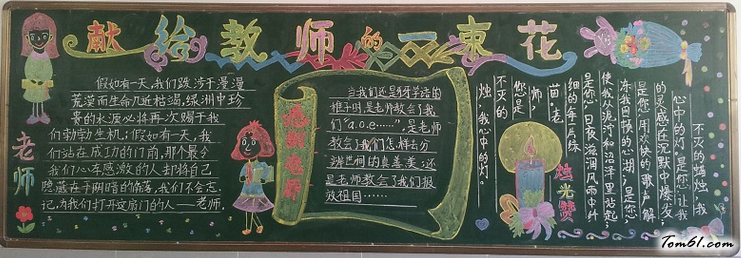 献给教师的一束花
老师
假如有一天,我们跋涉于漫漫
荒漠而生命几近枯竭,绿洲中珍
贵的水源必将再次赐予我
们勃勃生机;假如有一天,我
们站在成功的门前,那个最令
我们心存感激的人却将自己
隐藏在于阴暗的角落,我们不会忘
记,为我们打开这扇门的人——老师,
感谢老师
当我们还是牙牙学语的
稚子时,是老师教会了我
们“a.o.e……”,是老师
教会了我们怎样去分
辨世间的真善美,还
是老师教会了我们报
效祖国……
不灭的蜡烛,我
心中的灯。是您,让我
的灵感在沉默中爆发
是您,用欢快的歌声解
冻我冒昧的心湖,是您
使我从泥泞和沼泽里站起,
是您,日夜滋润风雨中纤
细的每一片绿
苗。老
师,
您是
不灭的
烛,我心中的灯。
烛光赞
Tom61.com